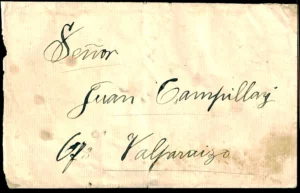 Señor
Juan Campillay
Valparaizo